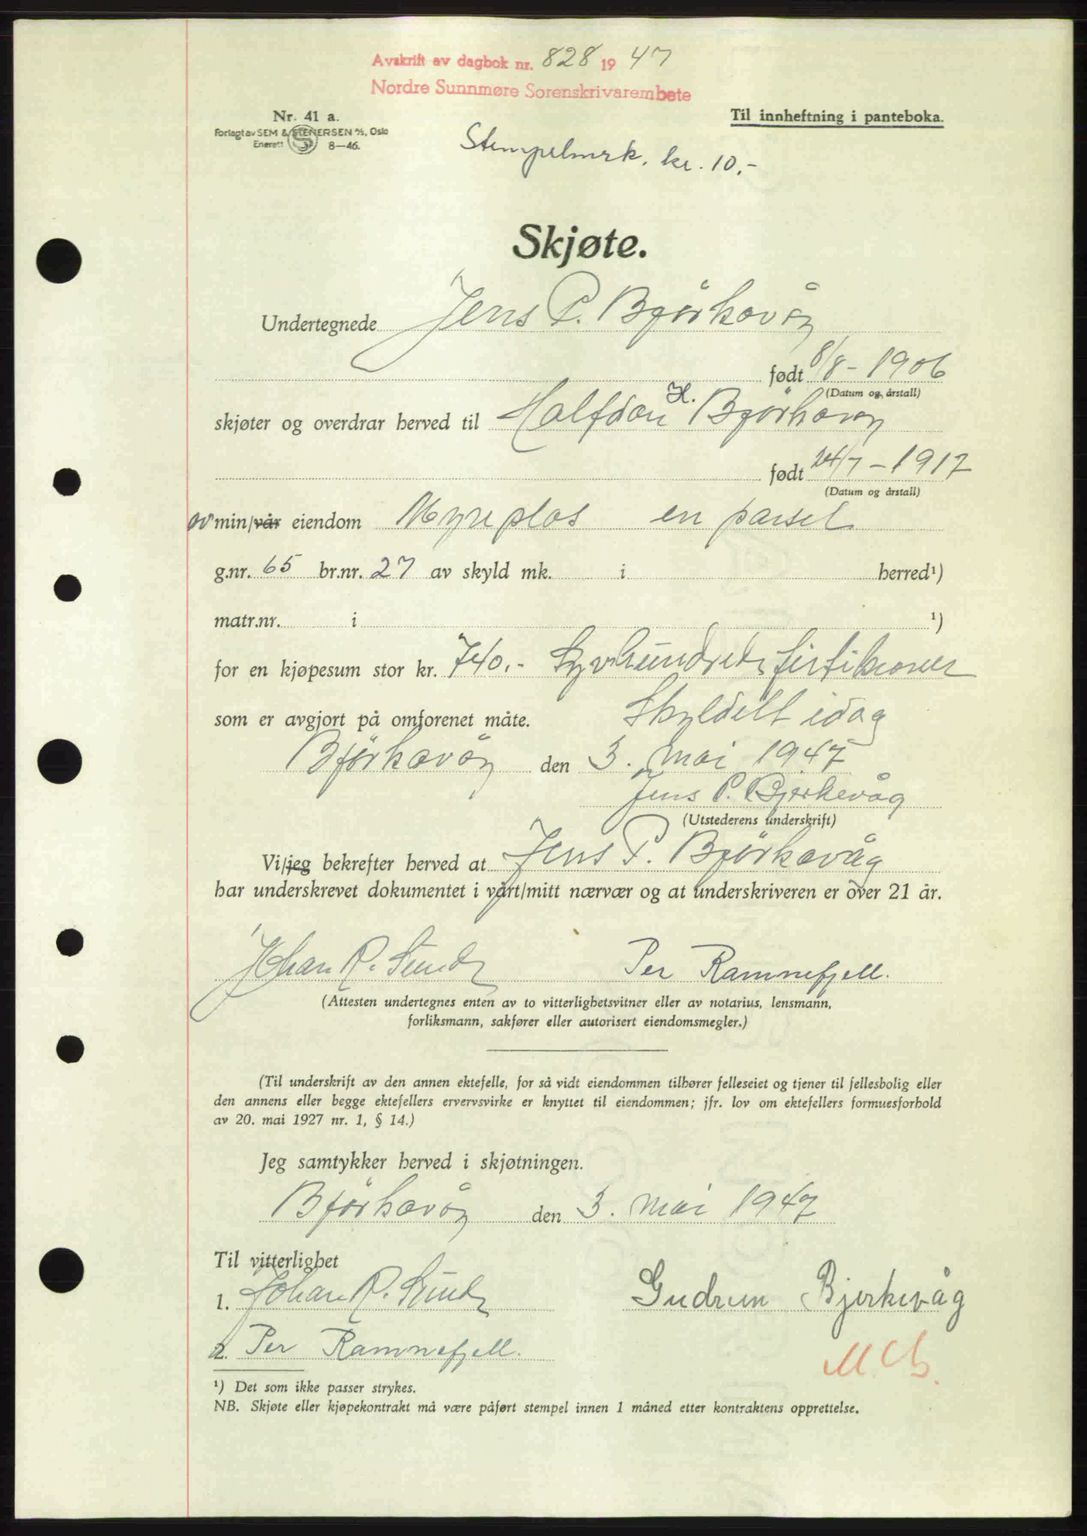 Avskrift av dagbok nr. 828 19 47
Nordre Sunnmøre Sorenskrivarembete
Nr. 41 a.
Forlagt av SEM & STENERSEN A/S, Oslo
Enerett S 8—46.
Til innheftning i panteboka.
Stempelmrk. kr. 10.-
Skjøte.
Undertegnede Jens P. Bjørkavåg
født 8/8 - 1906
(Datum og årstall)
skjøter og overdrar herved til Halfdan H. Bjørkavåg
født 24/7 - 1917
(Datum og årstall)
av min/vår eiendom Myreplas en parsel
g.nr. 65 br.nr. 27 av skyld mk. i herred¹)
matr.nr. i ¹)
for en kjøpesum stor kr. 740.- Syvhundrede førtikroner
som er avgjort på omforenet måte. Skyldelt idag
Bjørkavåg den 3. mai 1947
Jens P. Bjerkevåg
(Utstederens underskrift)
Vi/jeg bekrefter herved at Jens P. Bjørkavåg
har underskrevet dokumentet i vårt/mitt nærvær og at underskriveren er over 21 år.
Johan R. Sunde Per Ramnefjell.
(Attesten undertegnes enten av to vitterlighetsvitner eller av notarius, lensmann,
forliksmann, sakfører eller autorisert eiendomsmegler.)
(Til underskrift av den annen ektefelle, for så vidt eiendommen tilhører felleseiet og tjener til fellesbolig eller
den annens eller begge ektefellers ervervsvirke er knyttet til eiendommen; jfr. lov om ektefellers formuesforhold
av 20. mai 1927 nr. 1, § 14.)
Jeg samtykker herved i skjøtningen.
Bjørkavåg den 3. mai 1947
Til vitterlighet
1. Johan R. Sunde Gudrun Bjerkevåg
2. Per Ramnefjell.
¹) Det som ikke passer strykes.
NB. Skjøte eller kjøpekontrakt må være påført stempel innen 1 måned etter kontraktens opprettelse.